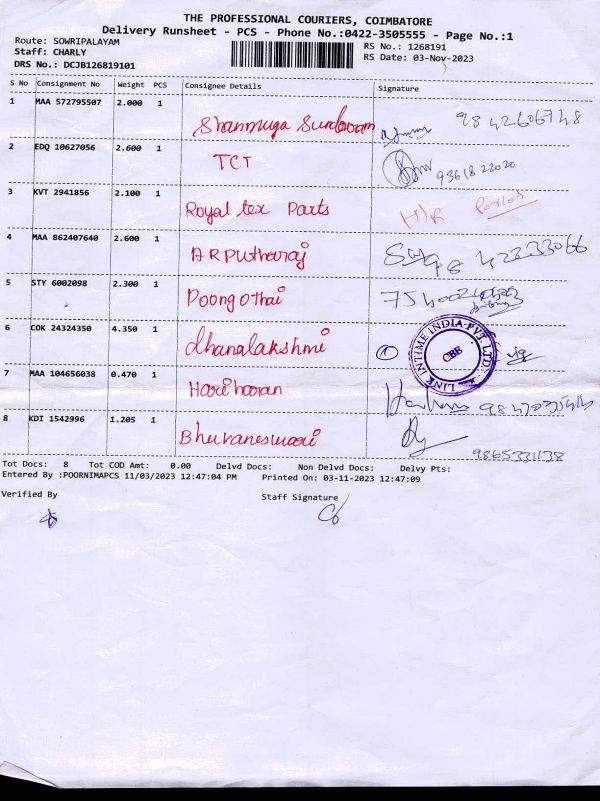 THE PROFESSIONAL COURIERS, COIMBATORE
Delivery Runsheet - PCS - Phone No.:0422-3505555 - Page No.:1
Route: SOWRIPALAYAM
Staff: CHARLY
DRS No.: DCJB126819101
RS No.: 1268191
RS Date: 03-Nov-2023
S No Consignment No Weight PCS Consignee Details Signature
1 MAA 572795507 2.000 1 Shanmuga Sundaram 9842606748
2 EDQ 10627056 2.600 1 TCT 93618 22020
3 KVT 2941856 2.100 1 Royal tex Parts
4 MAA 862407640 2.600 1 ARPutharaj
5 STY 6002098 2.300 1 Poongothai
6 COK 24324350 4.350 1 dhanalakshmi
LINK INTIME INDIA PVT LTD
CBE
7 MAA 104656038 0.470 1 Hariharan
8 KDI 1542996 1.205 1 Bhuvaneswari
Tot Docs: 8 Tot COD Amt: 0.00 Delvd Docs: Non Delvd Docs: Delvy Pts:
Entered By :POORNIMAPCS 11/03/2023 12:47:04 PM Printed On: 03-11-2023 12:47:09
Verified By Staff Signature